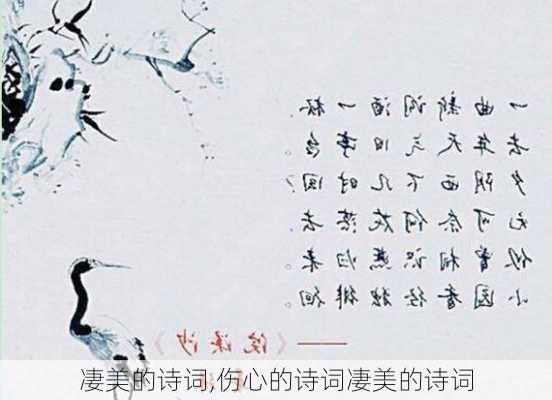 一曲新词酒一杯，
去年天气旧亭台。
夕阳西下几时回？
无可奈何花落去，
似曾相识燕归来。
小园香径独徘徊。
——《浣溪沙》
凄美的诗词,伤心的诗词凄美的诗词